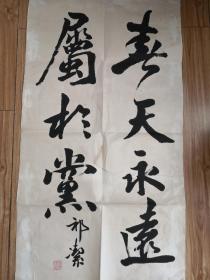 春天永遠
屬於黨
祁潔